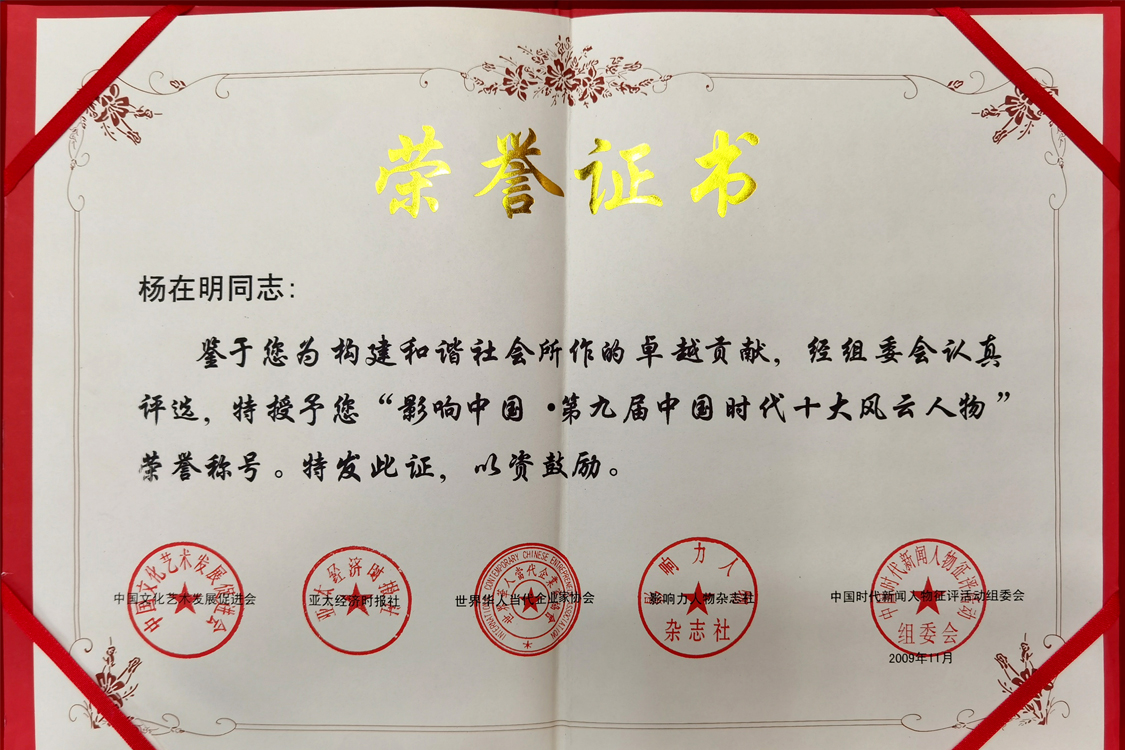 荣誉证书
杨在明同志:
鉴于您为构建和谐社会所作的卓越贡献，经组委会认真
评选，特授予您“影响中国·第九届中国时代十大风云人物”
荣誉称号。特发此证，以资鼓励。
中国文化艺术发展促进会
亚太经济时报社
世界华人当代企业家协会
影响力人物杂志社
中国时代新闻人物征评活动组委会
2009年11月
中国文化艺术发展促进会
亚太经济时报社
INTERNATIONAL CONTEMPORARY CHINESE ENTREPRENEURS ASSOCIATION
杂志社
中国时代新闻人物征评活动
组委会